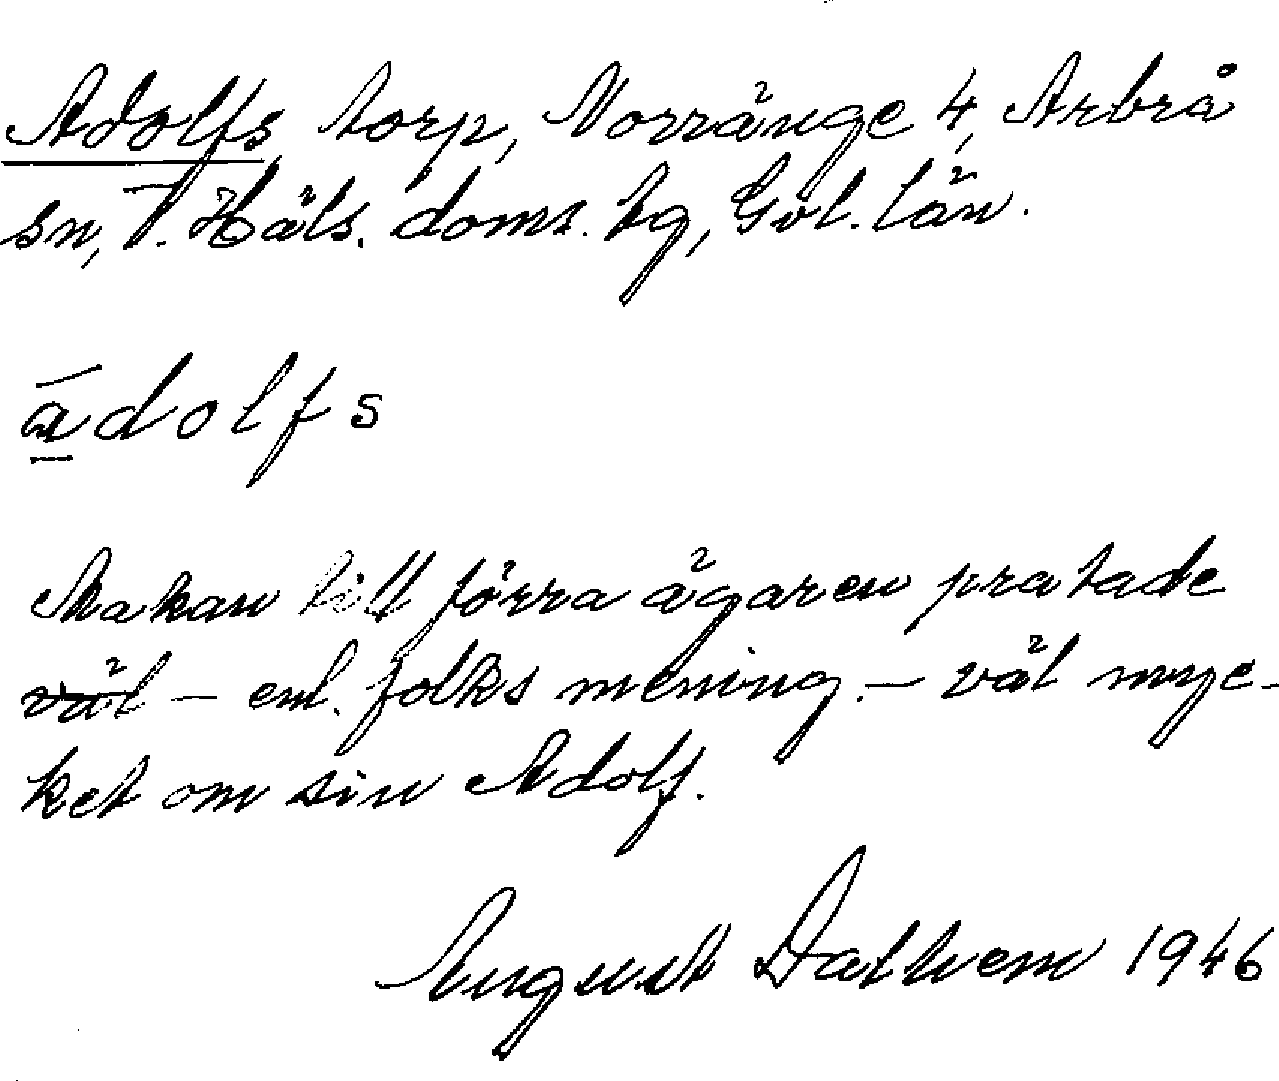 Adolfs, torp, Norränge 4, Arbrå
sn, V. Häls. doms. tg, Gvl. län.
ādolfs
Makan till förra ägaren pratade
väl – enl. folks mening – väl myc-
ket om sin Adolf.
August Dalhem 1946